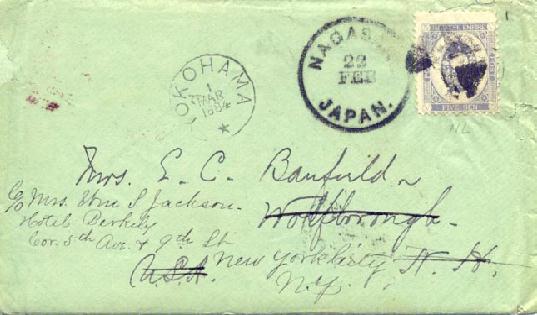 NAGASAKI
22
FEB
JAPAN.
YOKOHAMA
1
MAR
1884
FIVE SEN
NL
Mrs. E. C. Banfield
c/o Mrs. S. Jackson.
Hotel Berkely
Cor. 5th Ave. & 9th St
Wolfborough.
New York City N. H.
U.S.A. N.Y.